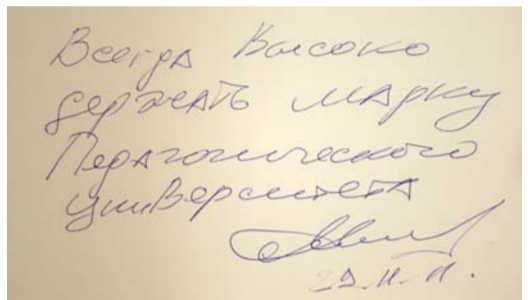 Всегда Высоко
держать марку
Педагогического
университета
29.11.11.